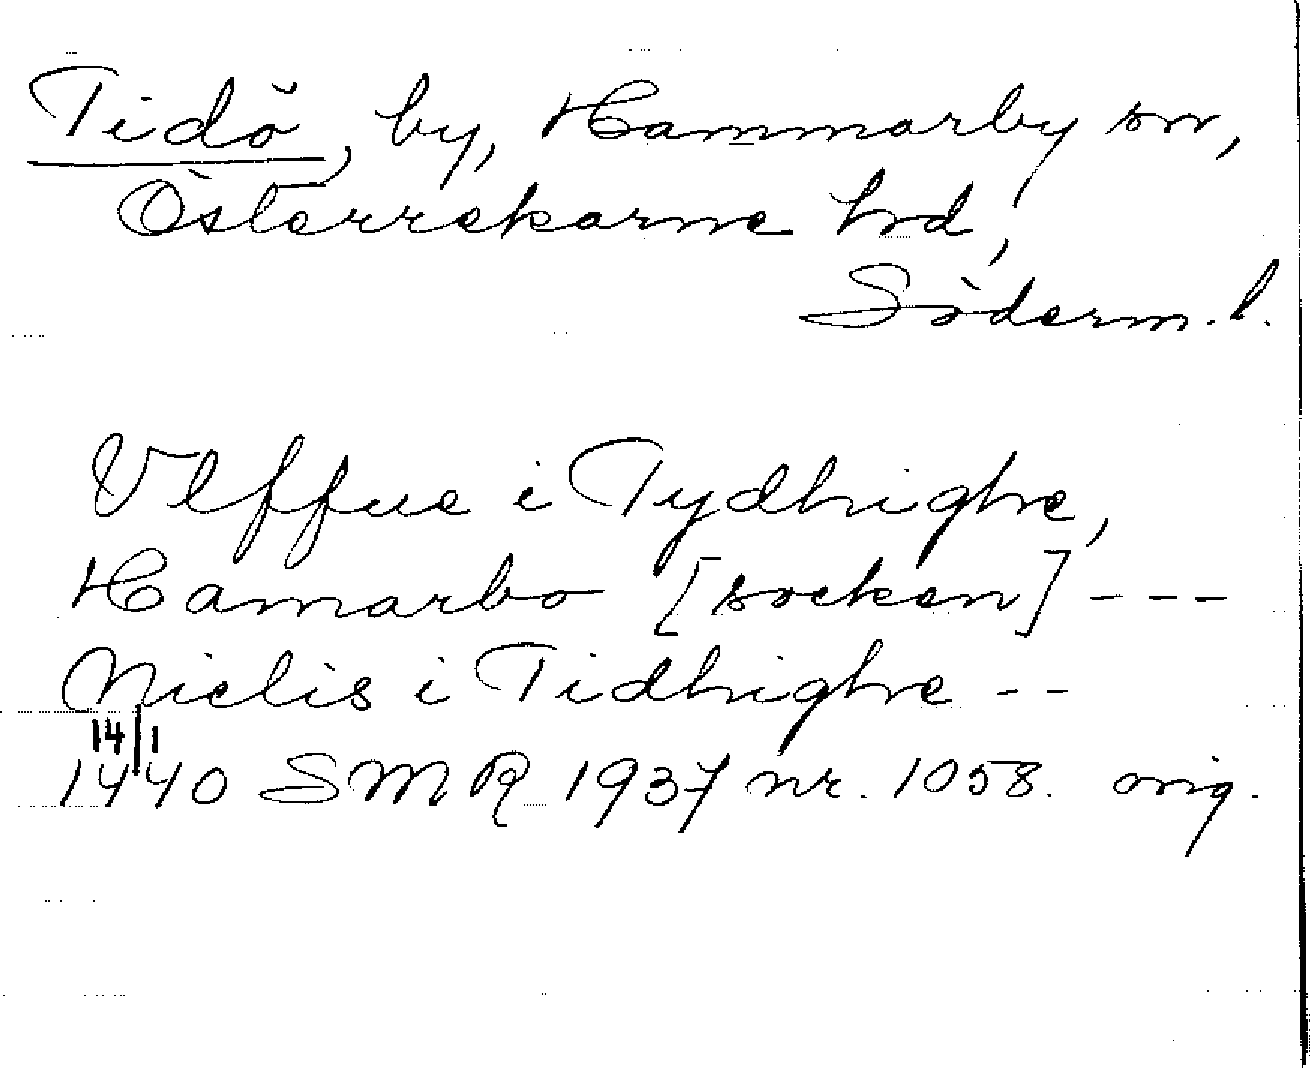 Tidö, by, Hammarby sn,
Österrekarne hd,
Söderm. l.
Vlffue i Tydhighe,
Hamarbo [socken] ---
Nielis i Tidhighe --
14/1
1440 SMR 1937 nr. 1058. orig.